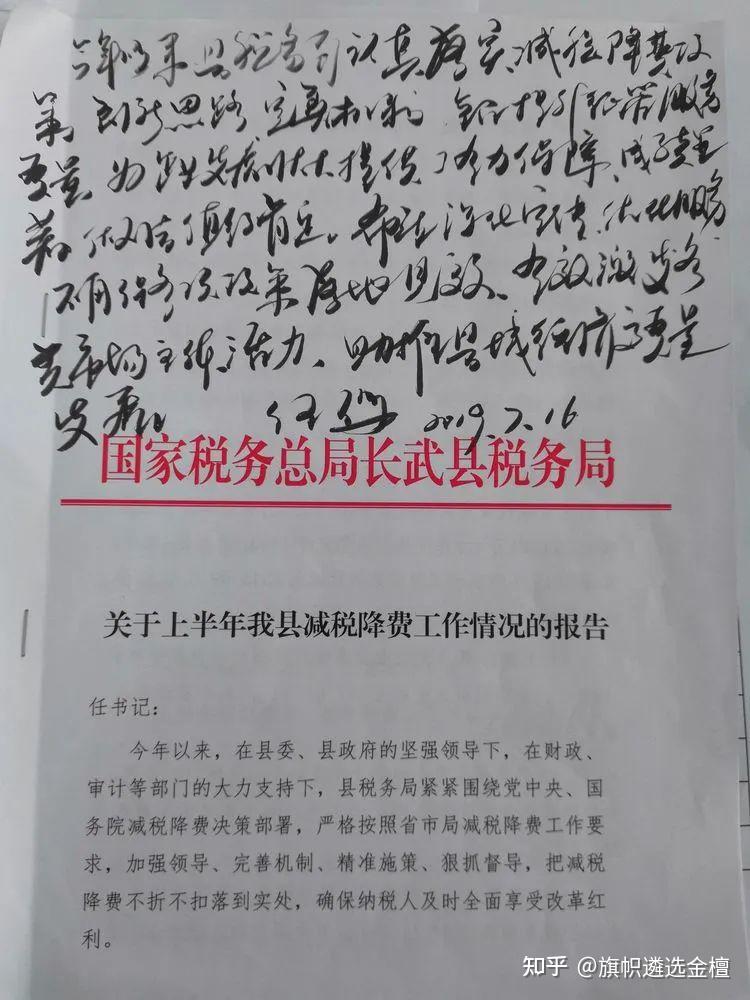 今年以来县税务局认真落实减税降费政
策,创新思路,完善机制,
质量,为企业发展壮大提供了有力保障,成绩显
著,做法值得肯定。希望深化宣传,优化服务
不断保障政策落地见效,有效激发各
类市场主体活力,助推县域经济高质量
发展。 任 2019.7.16
国家税务总局长武县税务局
关于上半年我县减税降费工作情况的报告
任书记:
今年以来,在县委、县政府的坚强领导下,在财政、
审计等部门的大力支持下,县税务局紧紧围绕党中央、国
务院减税降费决策部署,严格按照省市局减税降费工作要
求,加强领导、完善机制、精准施策、狠抓督导,把减税
降费不折不扣落到实处,确保纳税人及时全面享受改革红
利。
知乎 @旗帜遴选金檀